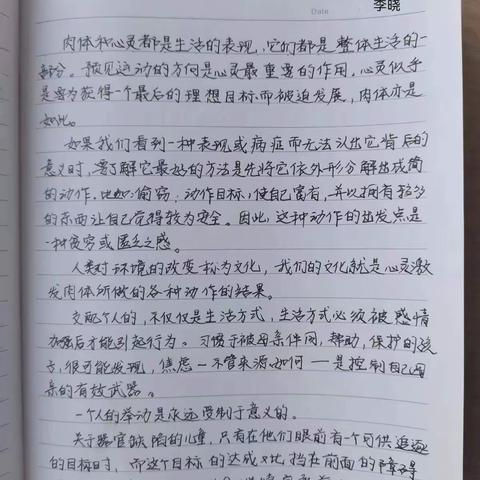 李晓
Date
肉体和心灵都是生活的表现,它们都是整体生活的一
部分。预见运动的方向是心灵最重要的作用,心灵似乎
是要为获得一个最后的理想目标而被迫发展,肉体亦是
如此。
如果我们看到一种表现或病症而无法认出它背后的
意义时,要了解它最好的方法是先将它依外形分解出成简
的动作,比如:偷窃:动作目标,使自己富有,并以拥有较多
的东西让自己觉得较为安全。因此,这种动作的出发点是
一种贫穷或匮乏之感。
人类对环境的改变称为文化,我们的文化就是心灵激
发肉体所做的各种动作的结果。
支配个人的,不仅仅是生活方式,生活方式必须被感情
加强后才能引起行为。习惯于被母亲体
帮助,保护的孩
子,很可能发现,焦虑——不管来源如何——是控制自己母
亲的有效武器。
一个人的举动是永远受制于意义的。
关于器官缺陷的儿童,只有在他们眼前有一个可供追逐
的目标时,而这个目标的达成对比挡在前面的障碍